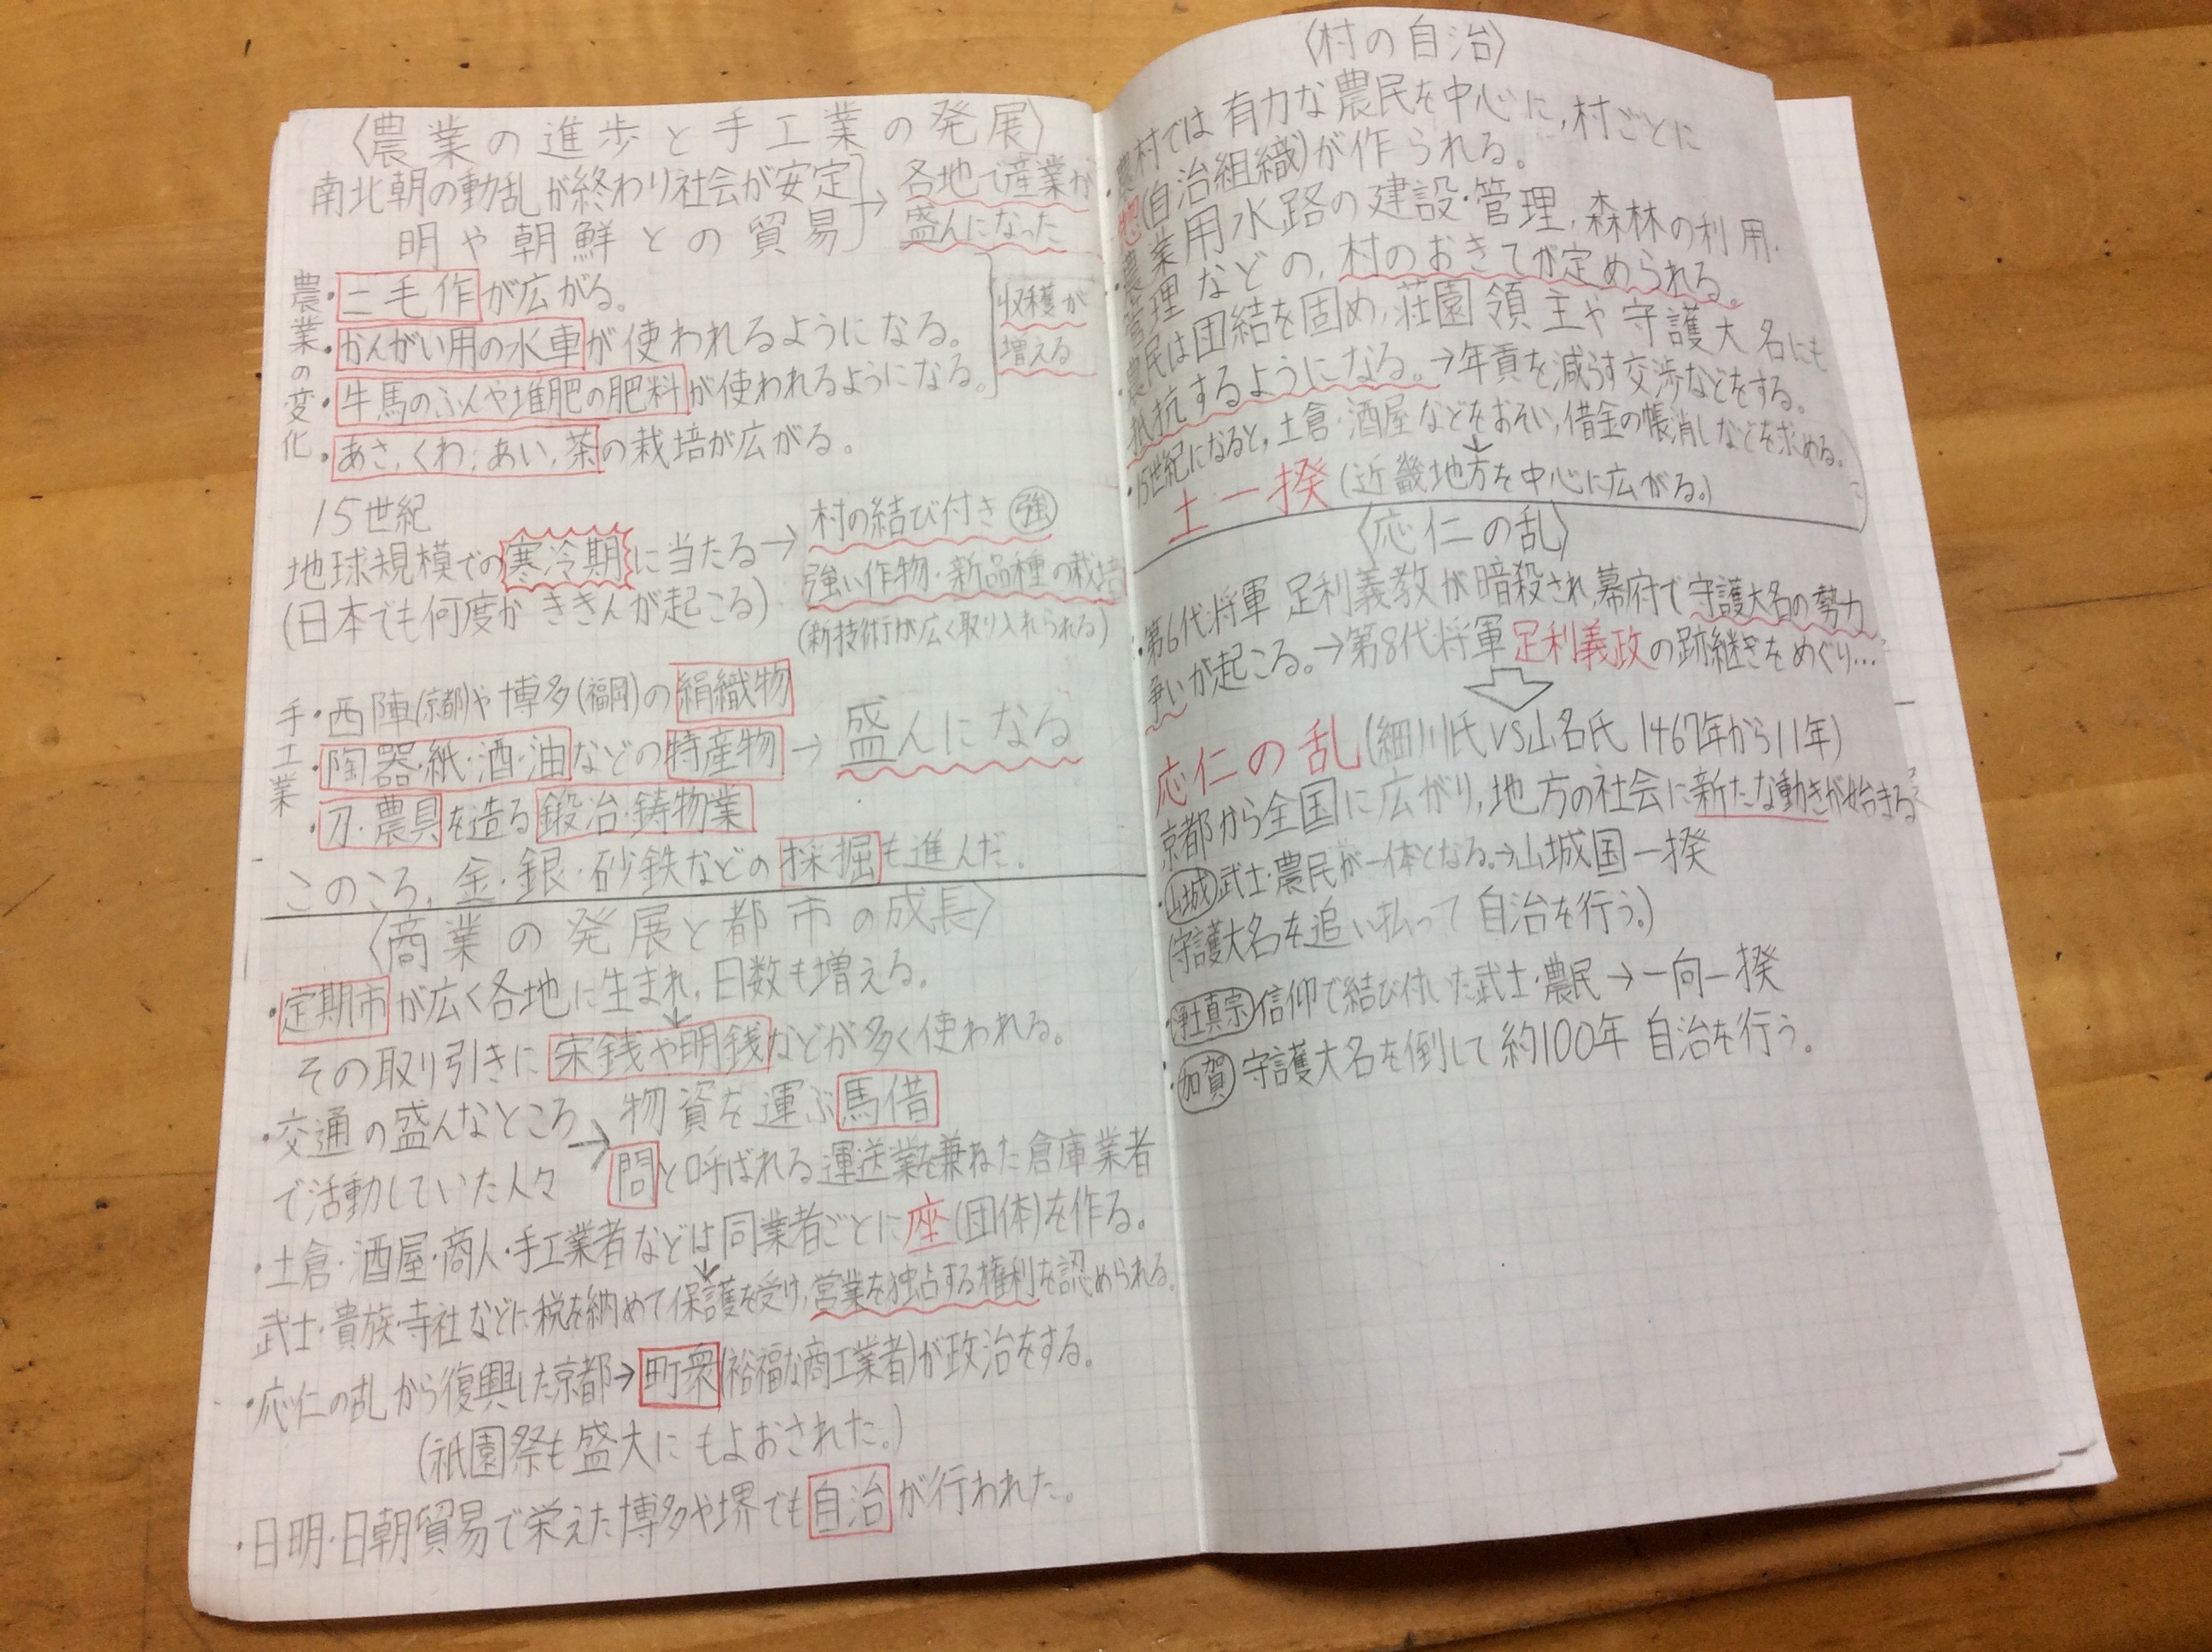 〈農業の進歩と手工業の発展〉
南北朝の動乱が終わり社会が安定
明や朝鮮との貿易
→各地で産業が
盛んになった
農業の変化
・二毛作が広がる。
・かんがい用の水車が使われるようになる。
・牛馬のふんや堆肥の肥料が使われるようになる。
収穫が
増える
・あさ,くわ,あい,茶の栽培が広がる。
15世紀
地球規模での寒冷期に当たる→
(日本でも何度かききんが起こる)
村の結び付き強
強い作物・新品種の栽培
(新技術が広く取り入れられる)
手工業
・西陣(京都)や博多(福岡)の絹織物
・陶器・紙・酒・油などの特産物→盛んになる
・刀・農具を造る鍛冶・鋳物業
このころ,金・銀・砂鉄などの採掘も進んだ。
〈商業の発展と都市の成長〉
・定期市が広く各地に生まれ,日数も増える。
↓
その取り引きに宋銭や明銭などが多く使われる。
・交通の盛んなところ
で活動していた人々
→物資を運ぶ馬借
問と呼ばれる運送業を兼ねた倉庫業者
・土倉・酒屋・商人・手工業者などは同業者ごとに座(団体)を作る。
↓
武士・貴族・寺社などに税を納めて保護を受け,営業を独占する権利を認められる。
・応仁の乱から復興した京都→町衆(裕福な商工業者)が政治をする。
(祇園祭も盛大にもよおされた。)
・日明・日朝貿易で栄えた博多や堺でも自治が行われた。
〈村の自治〉
・農村では有力な農民を中心に,村ごとに
惣(自治組織)が作られる。
・農業用水路の建設・管理,森林の利用・
管理などの,村のおきてが定められる。
・農民は団結を固め,荘園領主や守護大名にも
抵抗するようになる。→年貢を減らす交渉などをする。
・15世紀になると,土倉・酒屋などをおそい,借金の帳消しなどを求める。
↓
土一揆(近畿地方を中心に広がる。)
〈応仁の乱〉
・第6代将軍 足利義教が暗殺され,幕府で守護大名の勢力
争いが起こる。→第8代将軍足利義政の跡継ぎをめぐり…
応仁の乱(細川氏VS山名氏 1467年から11年)
京都から全国に広がり,地方の社会に新たな動きが始まる
・山城 武士・農民が一体となる。→山城国一揆
(守護大名を追い払って自治を行う。)
・浄土真宗 信仰で結び付いた武士・農民→一向一揆
・加賀 守護大名を倒して約100年自治を行う。